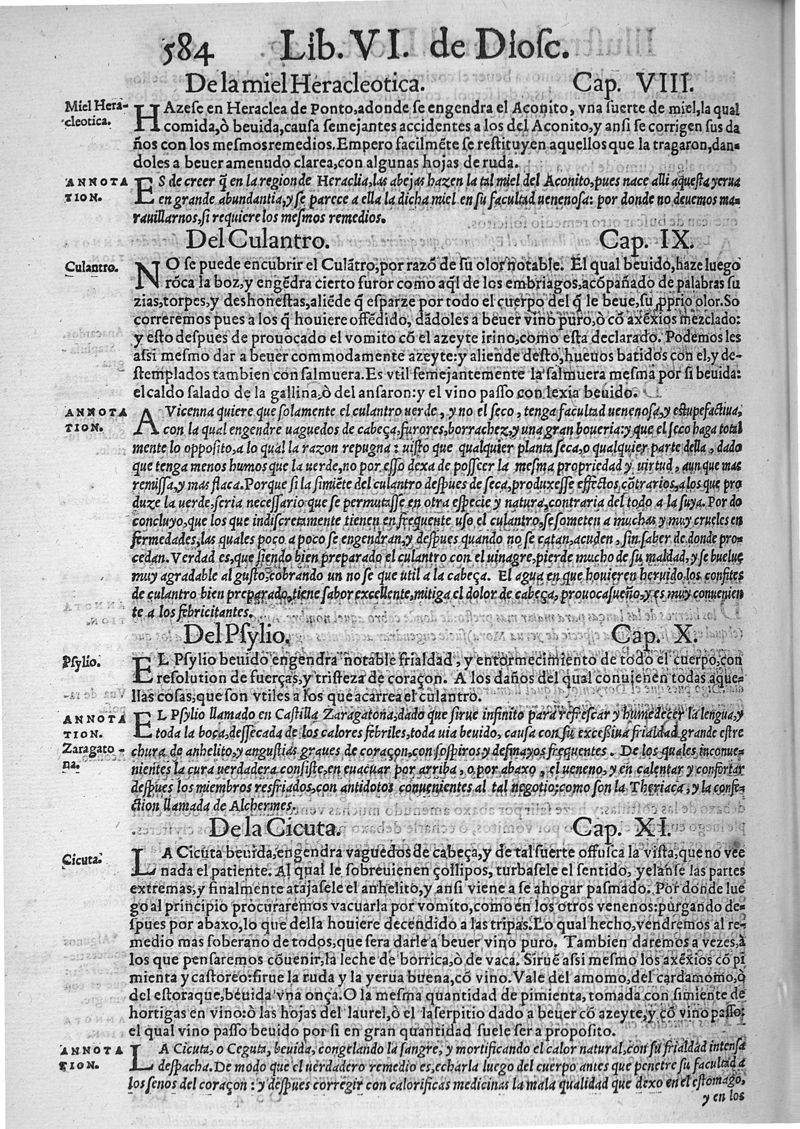 584 Lib. VI. de Diosc.
De la miel Heracleotica. Cap. VIII.
Miel Heracleotica.
HAzese en Heraclea de Ponto, adonde se engendra el Aconito, vna suerte de miel, la qual
comida, ò beuida, causa semejantes accidentes a los del Aconito, y ansi se corrigen sus da
ños con los mesmos remedios. Empero facilmẽte se restituyen aquellos que la tragaron, dan-
doles a beuer amenudo clarea, con algunas hojas de ruda.
ANNOTA
TION.
ES de creer q̃ en la region de Heraclia, las abejas hazen la tal miel del Aconito, pues nace alli aquesta yerua
en grande abundantia, y se parece a ella la dicha miel en su facultad uenenosa: por donde no deuemos ma-
rauillarnos, si requiere los mesmos remedios.
Del Culantro. Cap. IX.
Culantro.
NO se puede encubrir el Culãtro, por razõ de su olor notable. El qual beuido, haze luego
rõca la boz, y engẽdra cierto furor como aq̃l de los embriagos, acõpañado de palabras su
zias, torpes, y deshonestas, aliẽde q̃ esparze por todo el cuerpo del q̃ le beue, su pprio olor. So
correremos pues a los q̃ houiere offẽdido, dãdoles a beuer vino puro, ò cõ axẽxios mezclado:
y esto despues de prouocado el vomito cõ el azeyte irino, como esta declarado. Podemos les
assi mesmo dar a beuer commodamente azeyte: y aliende desto, hueuos batidos con el, y de-
stemplados tambien con salmuera. Es vtil semejantemente la salmuera mesma por si beuida:
el caldo salado de la gallina, ò del ansaron: y el vino passo con lexia beuido.
ANNOTA
TION.
AVicenna quiere que solamente el culantro uerde, y no el seco, tenga facultad uenenosa, y estupefactiua,
con la qual engendre uaguedos de cabeça, furores, borrachez, y una gran boueria: y que el seco haga total
mente lo opposito, a lo qual la razon repugna: uisto que qualquier planta seca, o qualquier parte della, dado
que tenga menos humos que la uerde, no por esso dexa de posseer la mesma propriedad y uirtud, aun que mas
remissa, y mas flaca. Porque si la simiẽte del culantro despues de seca, produxesse effectos, cõtrarios, a los que pro
duze la uerde, seria necessario que se permutasse en otra especie y natura, contraria del todo a la suya. Por do
concluyo, que los que indiscretamente tienen en frequente uso el culantro, se someten a muchas y muy crueles en
fermedades, las quales poco a poco se engendran, y despues quando no se catan, acuden, sin saber de donde pro-
cedan. Verdad es, que siendo bien preparado el culantro con el uinagre, pierde mucho de su maldad, y se buelue
muy agradable al gusto, cobrando un no se que util a la cabeça. El agua en que houieren heruido los confites
de culantro bien preparado, tiene sabor excellente, mitiga el dolor de cabeça, prouoca sueño, y es muy conuenien
te a los febricitantes.
Del Psylio. Cap. X.
Psylio.
EL Psylio beuido engendra notable frialdad, y entormecimiento de todo el cuerpo, con
resolution de fuerças, y tristeza de coraçon. A los daños del qual conuienen todas aque-
llas cosas, que son vtiles a los que acarrea el culantro.
ANNOTA
TION.
Zaragatona.
EL Psylio llamado en Castilla Zaragatona, dado que sirue infinito para refrescar y humedecer la lengua, y
toda la boca, dessecada de los calores febriles, toda uia beuido, causa con su excessiua frialdad grande estre
chura de anhelito, y angustias graues de coraçon, con sospiros y desmayos frequentes. De los quales inconue-
nientes la cura uerdadera consiste, en euacuar por arriba, o por abaxo, el ueneno, y en calentar y confortar
despues los miembros resfriados, con antidotos conuenientes al tal negotio: como son la Theriaca, y la confe-
ction llamada de Alchermes.
De la Cicuta. Cap. XI.
Cicuta.
LA Cicuta beuida, engendra vaguedos de cabeça, y de tal suerte offusca la vista, que no vee
nada el patiente. Al qual le sobreuienen çollipos, turbasele el sentido, yelanse las partes
extremas, y finalmente atajasele el anhelito, y ansi viene a se ahogar pasmado. Por donde lue
go al principio procuraremos vacuarla por vomito, como en los otros venenos: purgando de-
spues por abaxo, lo que della houiere decendido a las tripas. Lo qual hecho, vendremos al re-
medio mas soberano de todos, que sera darle a beuer vino puro. Tambien daremos a vezes, à
los que pensaremos cõuenir, la leche de borrica, ò de vaca. Siruẽ assi mesmo los axẽxios cõ pi
mienta y castoreo: sirue la ruda y la yerua buena, cõ vino. Vale del amomo, del cardamomo, ò
del estoraque, beuida vna onça. O la mesma quantidad de pimienta, tomada con simiente de
hortigas en vino: ò las hojas del laurel, ò el laserpitio dado a beuer cõ azeyte, y cõ vino passo:
el qual vino passo beuido por si en gran quantidad suele ser a proposito.
ANNOTA
TION.
LA Cicuta, o Ceguta, beuida, congelando la sangre, y mortificando el calor natural, con su frialdad intensa
despacha. De modo que el uerdadero remedio es, echarla luego del cuerpo antes que penetre su facultad a
los senos del coraçon: y despues corregir con calorificas medicinas la mala qualidad que dexo en el estomago,
y en los